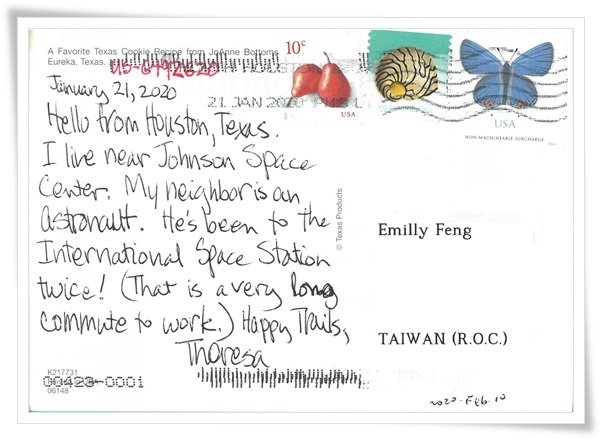 A Favorite Texas Cookie Recipe from JoAnne Bottoms
Eureka, Texas.
US-6492620
January 21, 2020
21 JAN 2020 PM
10c
USA
USA
NON-MACHINEABLE SURCHARGE
Hello from Houston, Texas.
I live near Johnson Space
Center. My neighbor is an
astronaut. He's been to the
International Space Station
twice! (That is a very long
commute to work.) Happy Trails,
Theresa
© Texas Products
Emilly Feng
TAIWAN (R.O.C.)
K217731
00423-0001
06148
2020.Feb.10